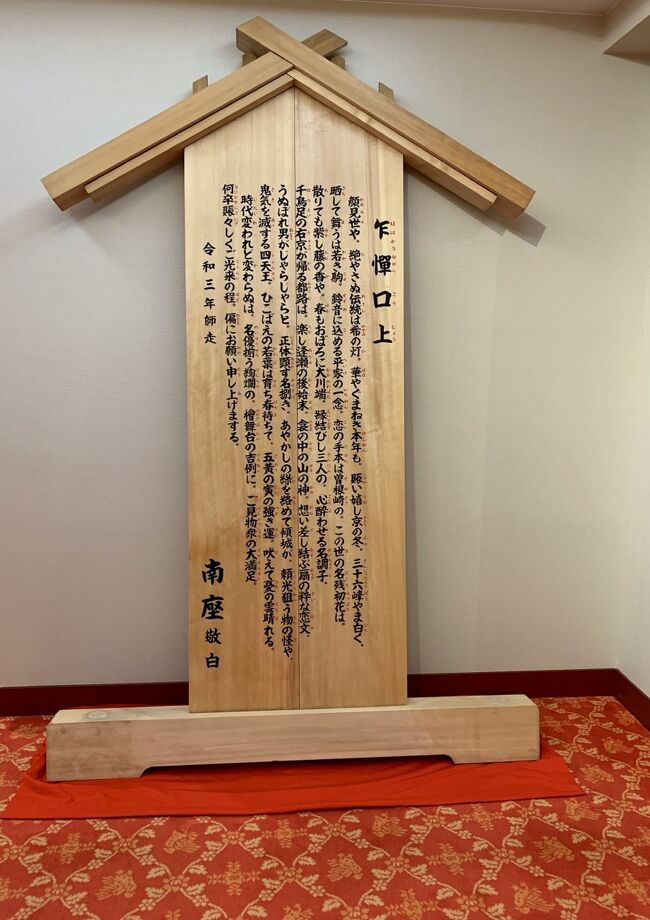 乍憚口上
顔見世や、絶やさぬ伝統は希の灯。華やぐまねき本年も、賑い嬉し京の冬。三十六峰やま白く、
晒して舞うは若き駒。鈴音に込める平家の一念。恋の手本は曽根崎の、この世の名残初花は。
散りても紫し藤の香や。春もおぼろに大川端。縁結びし三人の、心酔わせる名調子。
千鳥足の右京が帰る都路は、楽し逢瀬の後始末。衾の中の山の神。想い差し結ぶ扇の粋な恋文。
うぬぼれ男がじゃらじゃらと。正体顕す名捌き。あやかしの糸を絡めて傾城が。頼光狙う物の怪や。
鬼気を滅する四天王。ひこばえの若葉は育ち春待ちて、五黄の寅の強き運。吠えて憂の雲晴れる。
時代変われど変わらぬは、名優揃う絢爛の、檜舞台の吉例に。ご見物衆の大満足。
何卒賑々しくご光来の程。偏にお願い申し上げまする。
令和三年師走
南座 敬白